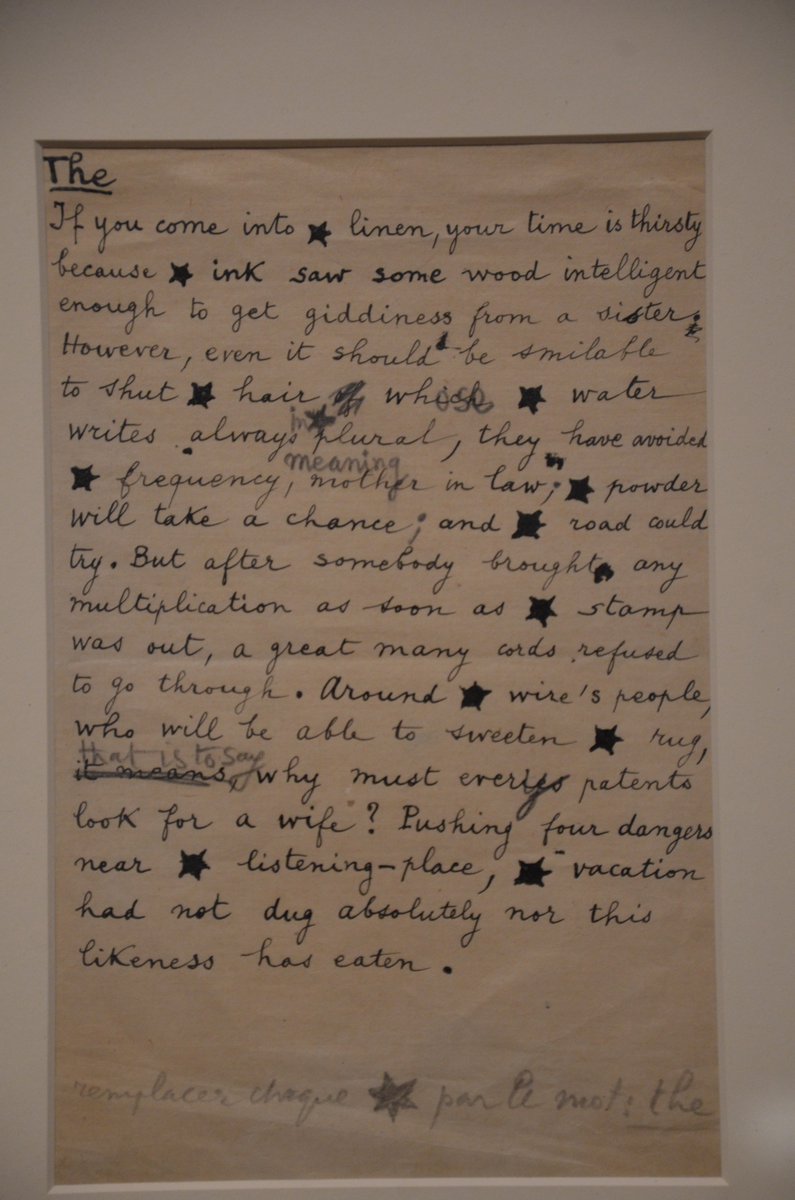 The
If you come into ★ linen, your time is thirsty
because ★ ink saw some wood intelligent
enough to get giddiness from a sister.
However, even it should be smilable
to shut ★ hair of which ★ water
writes always in ★ plural, they have avoided
meaning
★ frequency, mother in law; ★ powder
will take a chance; and ★ road could
try. But after somebody brought any
multiplication as soon as ★ stamp
was out, a great many cords refused
to go through. Around ★ wire's people,
who will be able to sweeten ★ rug,
that is to say
it means, why must every patents
look for a wife? Pushing four dangers
near ★ listening-place, ★ vacation
had not dug absolutely nor this
likeness has eaten.
remplacer chaque ★ par le mot: the